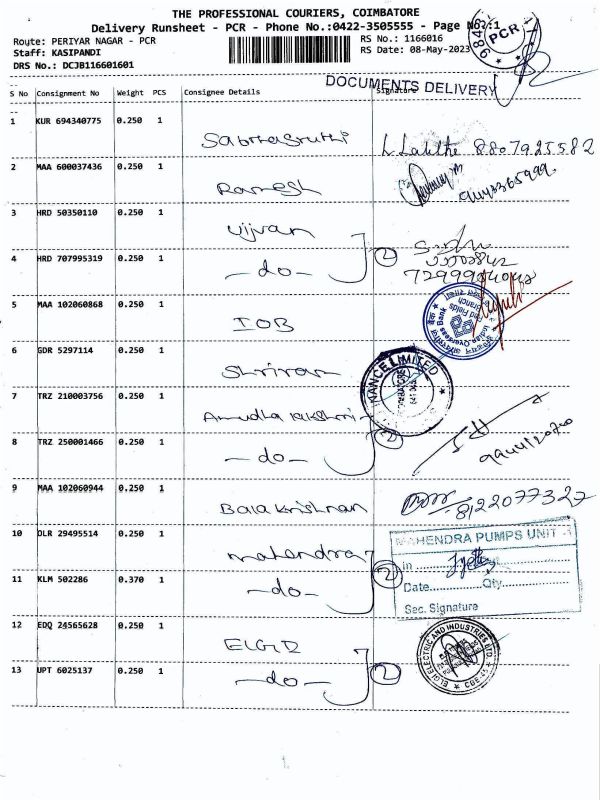 THE PROFESSIONAL COURIERS, COIMBATORE
Delivery Runsheet - PCR - Phone No.:0422-3505555 - Page No.:1
Route: PERIYAR NAGAR - PCR
RS No.: 1166016
Staff: KASIPANDI
RS Date: 08-May-2023
DRS No.: DCJB116601601
PCR
DOCUMENTS DELIVERY
S No Consignment No Weight PCS Consignee Details Signature
1 KUR 694340775 0.250 1
L Lalitha 8807925582
2 MAA 600037436 0.250 1 Ramesh
3 HRD 50350110 0.250 1 Vijvan
4 HRD 707995319 0.250 1 -do- 2
5 MAA 102060868 0.250 1 IOB
Indian Overseas Bank
6 GDR 5297114 0.250 1 Shriram
FINANCE LIMITED
7 TRZ 210003756 0.250 1 Amudha lakshmi
8 TRZ 250001466 0.250 1 -do- 2
9 MAA 102060944 0.250 1 Bala krishnan 8122077327
10 DLR 29495514 0.250 1 mahendra
MAHENDRA PUMPS UNIT
In
Date Qty.
Sec. Signature
11 KLM 502286 0.370 1 -do- 2
12 EDQ 24565628 0.250 1 ELGI
ELGI ELECTRIC AND INDUSTRIES LTD.
13 UPT 6025137 0.250 1 -do- 2